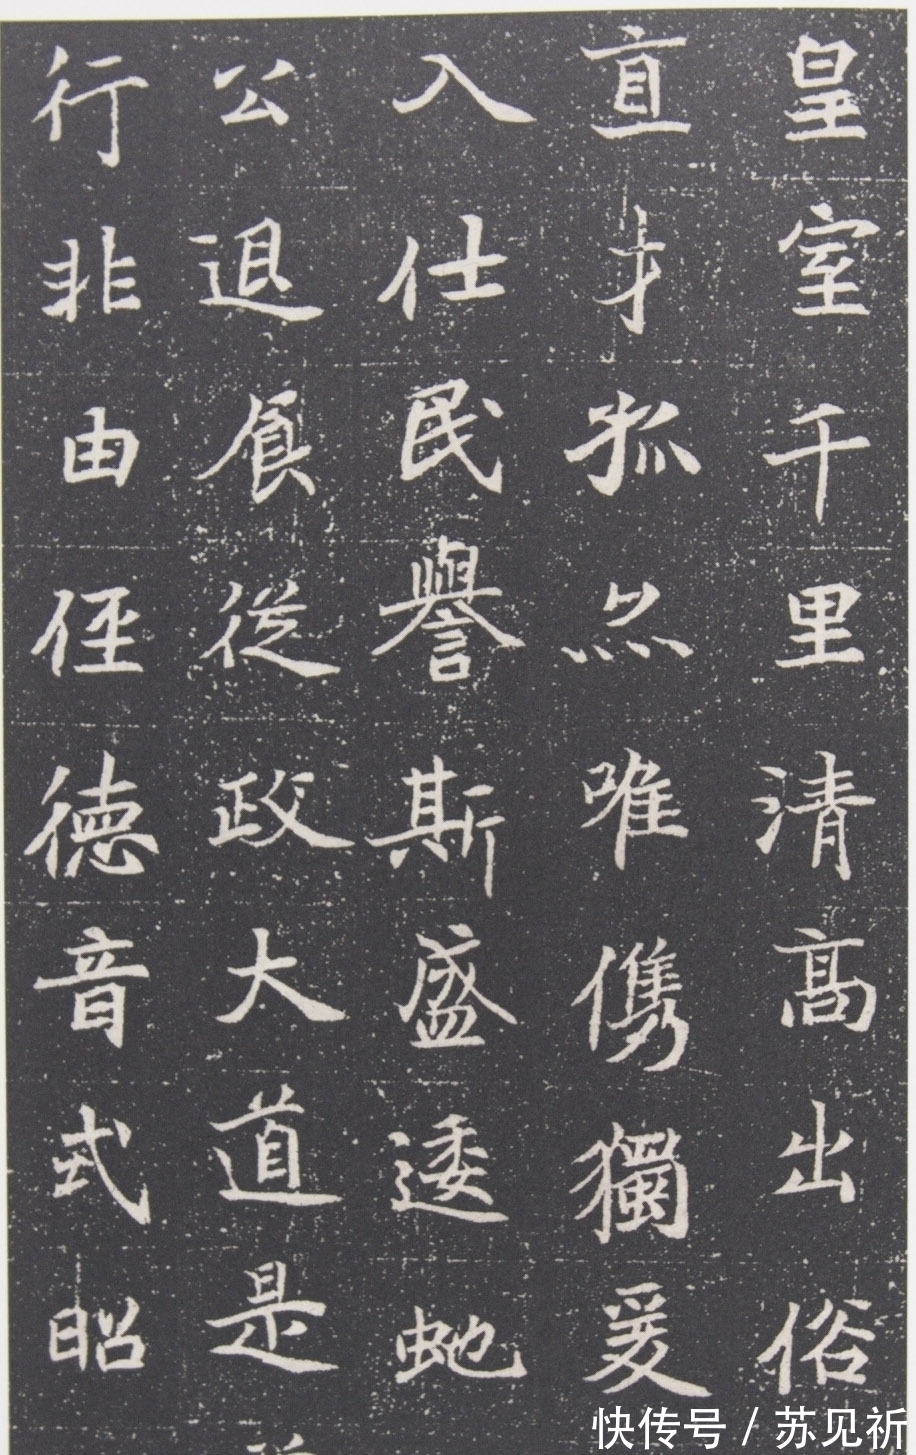 皇室千里清高出俗
直才孤然唯儁獨爰
入仕民譽斯盛逶虵
公退飡從政大道是
行非由徑德音式昭
快传号 / 苏见祈